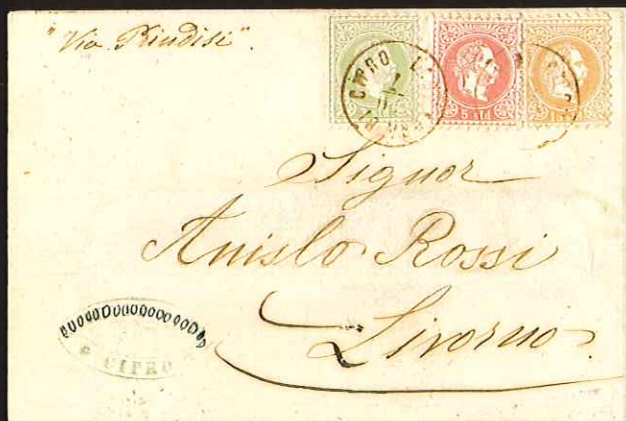 "Via Brindisi".
CIPRO
5 sld
Signor
Anislo Rossi
Livorno
CIPRO